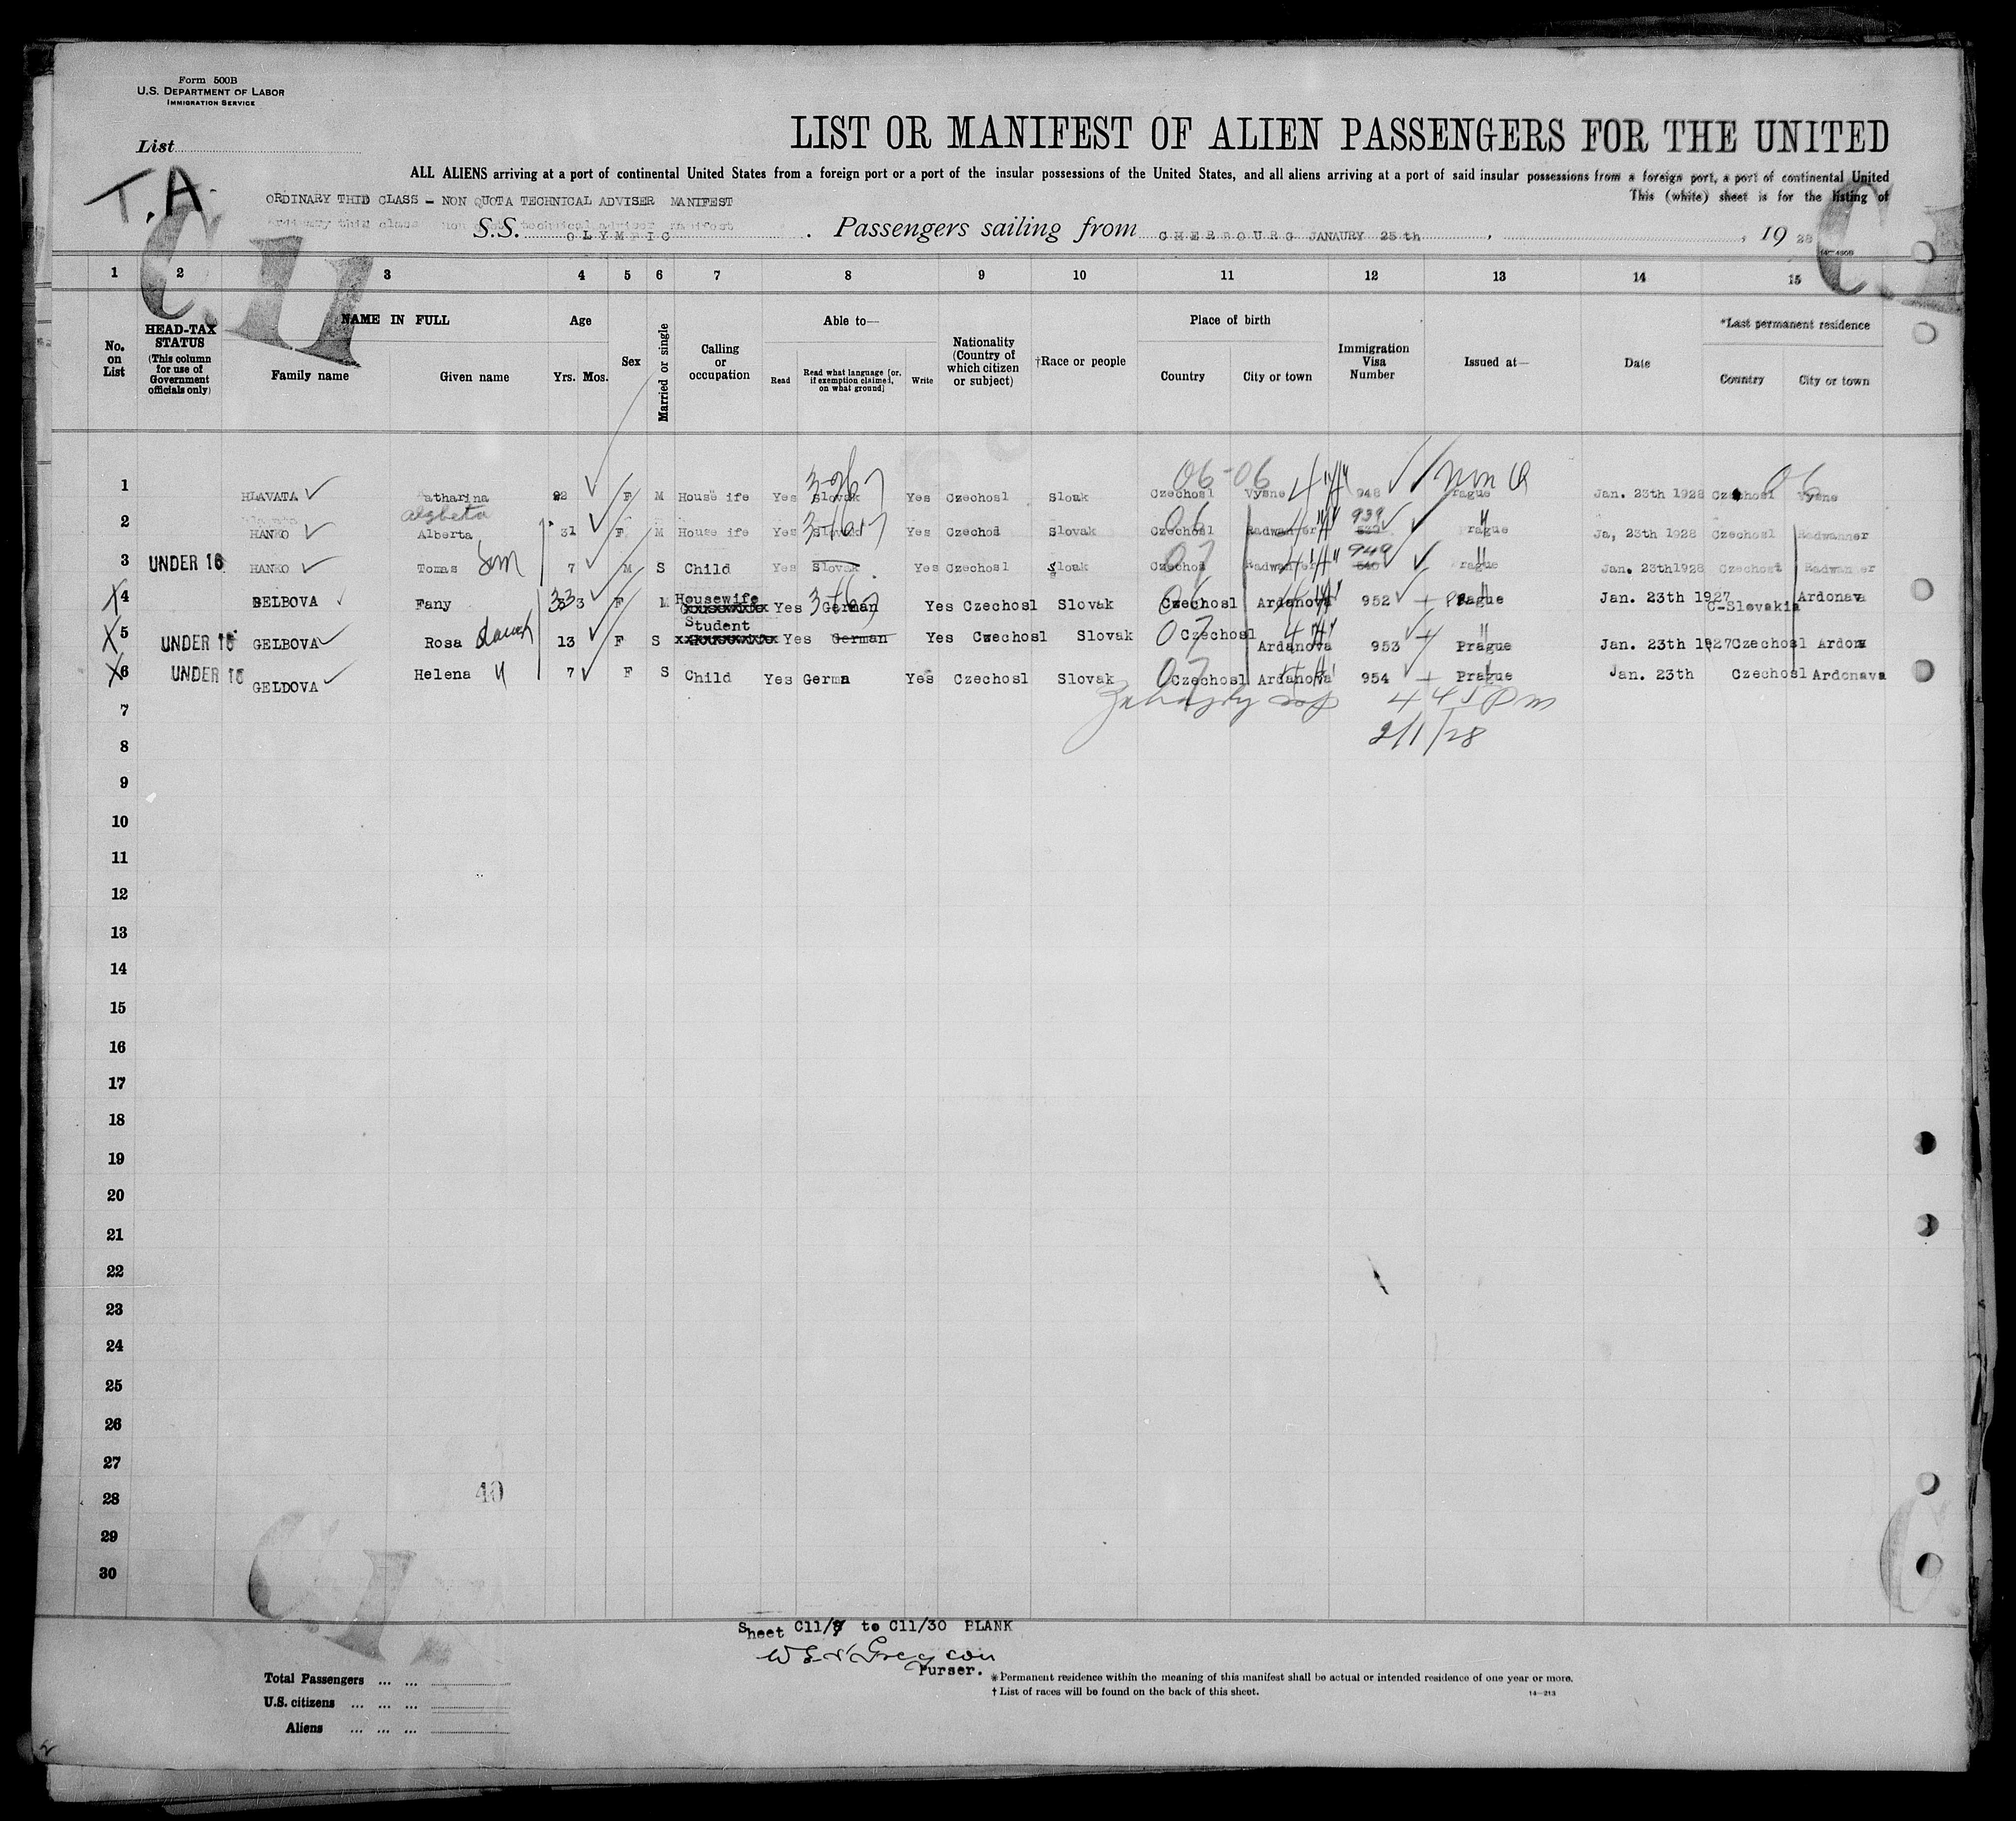 Form 500B
U.S. DEPARTMENT OF LABOR
IMMIGRATION SERVICE
List
T.A.
LIST OR MANIFEST OF ALIEN PASSENGERS FOR THE UNITED
ALL ALIENS arriving at a port of continental United States from a foreign port or a port of the insular possessions of the United States, and all aliens arriving at a port of said insular possessions from a foreign port, a port of continental United
This (white) sheet is for the listing of
ORDINARY THID CLASS - NON QUOTA TECHNICAL ADVISER MANIFEST
S.S. OLYMPIC . Passengers sailing from CHERBOURG JANAURY 25th , , 19 28
1 2 3 4 5 6 7 8 9 10 11 12 13 14 15
No. on List
HEAD-TAX STATUS (This column for use of Government officials only)
NAME IN FULL
Family name Given name
Age
Yrs. Mos.
Sex
Married or single
Calling or occupation
Able to—
Read Read what language [or, if exemption claimed, on what ground] Write
Nationality (Country of which citizen or subject)
†Race or people
Place of birth
Country City or town
Immigration Visa Number
Issued at—
Date
*Last permanent residence
Country City or town
3-26-7 06-06 4"4" Non Q 06
1 HLAVATA atharina 22 F M House ife Yes Slovak Yes Czechosl Sloak Czechosl Vysne 948 rague Jan. 23th 1928 Czechosl Vysne
Alzbeta 939
2 HANKO Alberta 31 F M House ife Yes Slovak Yes Czechos Slovak Czechosl Radwanner rague Ja, 23th 1928 Czechosl Radwanner
949
3 UNDER 16 HANKO Tomas Son 7 M S Child Yes Slovak Yes Czechosl Sloak Czechos Radwanner rague Jan. 23th1928 Czechost Radwanner
4 GELBOVA Fany 33 3 F M Housewife Yes German Yes Czechosl Slovak Czechosl Ardanova 952 Prague Jan. 23th 1927 C-Slovakia Ardonava
5 UNDER 16 GELBOVA Rosa 13 F S Student Yes German Yes Czechosl Slovak 07 Czechosl Ardanova 953 Prague Jan. 23th 1927 Czechosl Ardona
6 UNDER 16 GELDOVA Helena 7 F S Child Yes Germa Yes Czechosl Slovak 07 Czechosl Ardanova 954 Prague Jan. 23th Czechosl Ardonava
4 45 PM
7
2/1/28
8
9
10
11
12
13
14
15
16
17
18
19
20
21
22
23
24
25
26
27
28 40
29
30
Sheet C11/7 to C11/30 BLANK
Purser.
Total Passengers ... ...
U.S. citizens ... ... ...
Aliens ... ... ...
*Permanent residence within the meaning of this manifest shall be actual or intended residence of one year or more.
†List of races will be found on the back of this sheet.
14—213